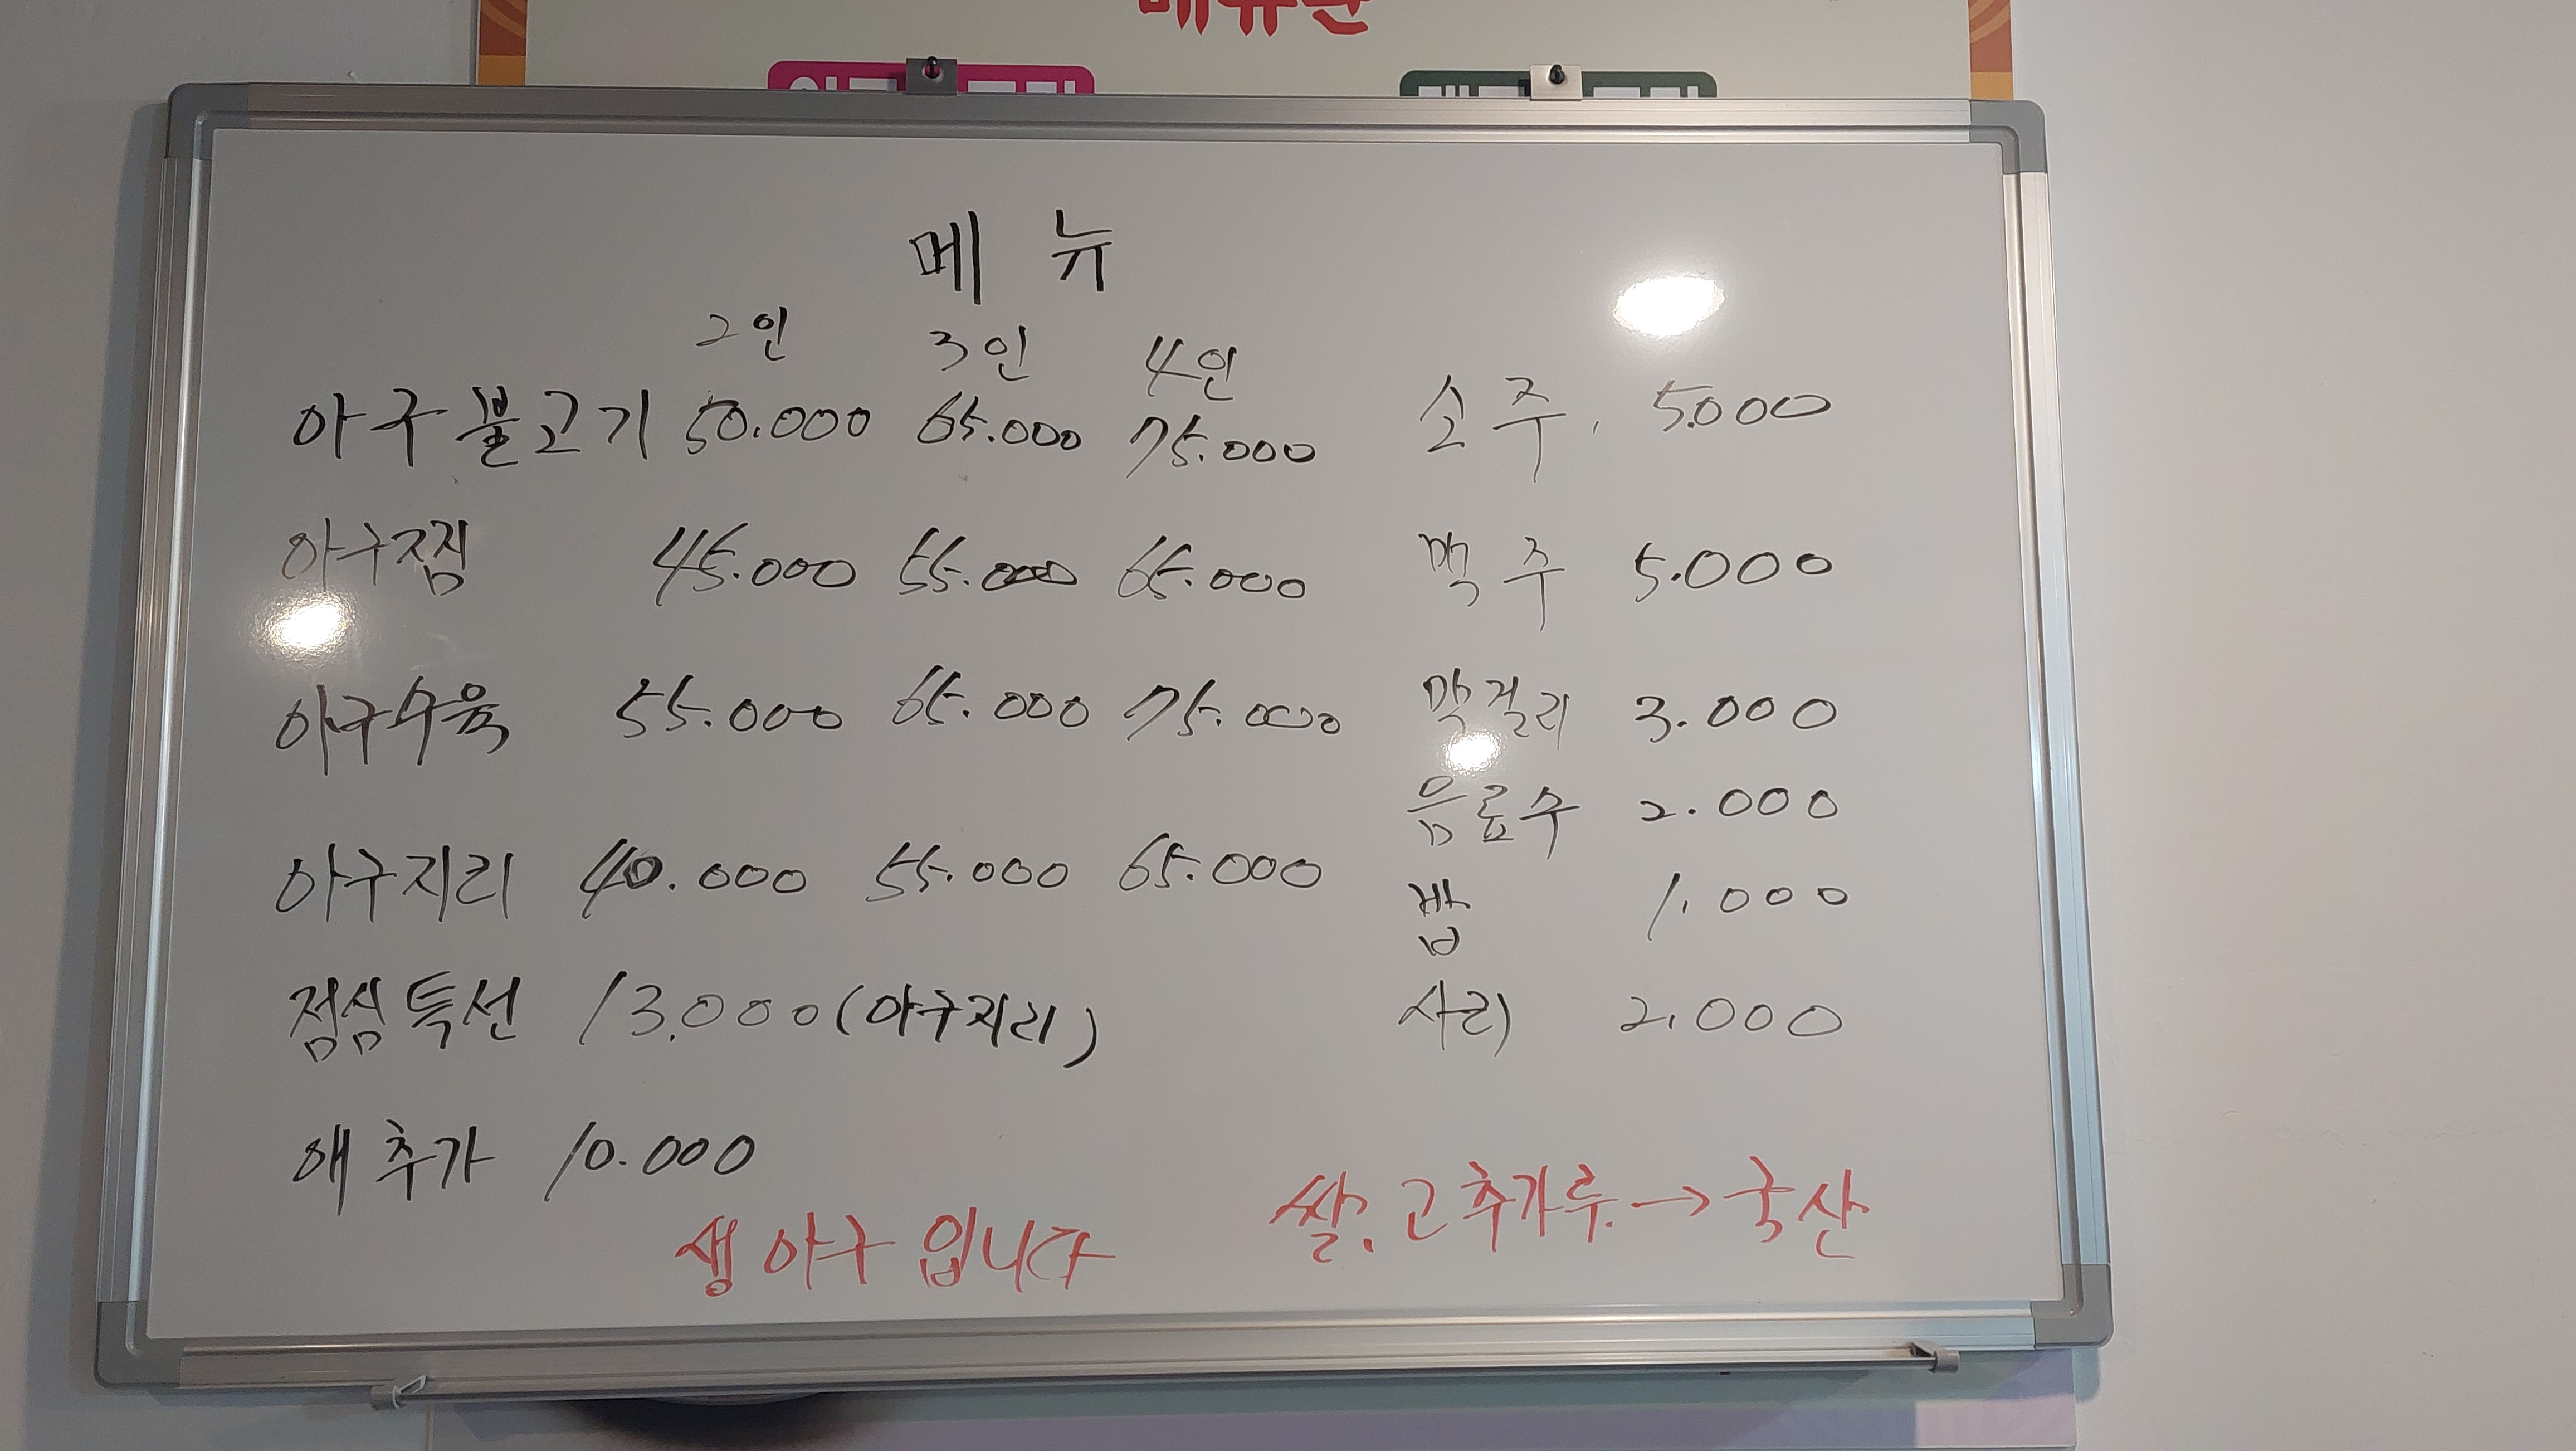 메뉴
2인 3인 4인
아구불고기 50.000 65.000 75.000
아구찜 45.000 55.000 65.000
아구수육 55.000 65.000 75.000
아구지리 40.000 55.000 65.000
점심특선 13.000 (아구지리)
애추가 10.000
소주. 5.000
맥주 5.000
막걸리 3.000
음료수 2.000
밥 1.000
사리 2.000
생아구입니다
쌀. 고추가루→국산